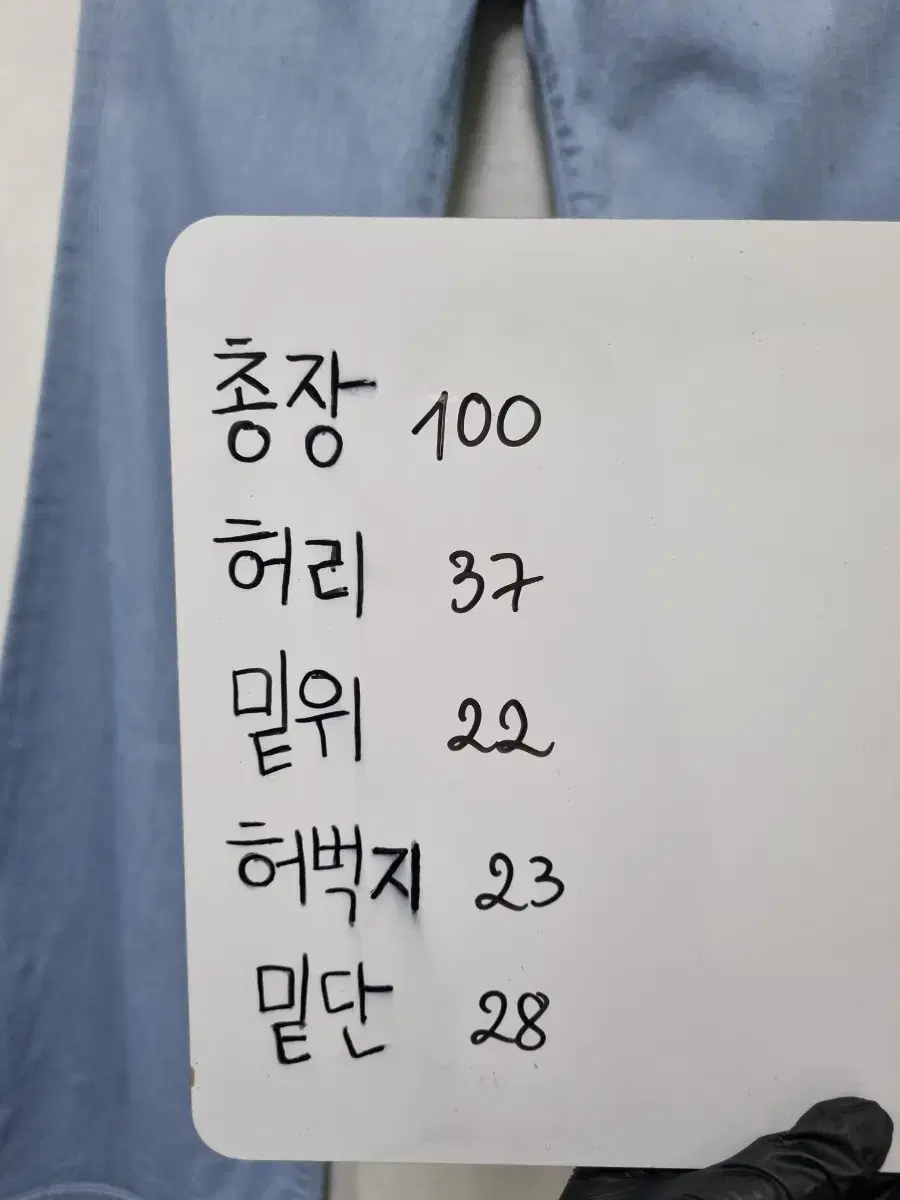 총장 100
허리 37
밑위 22
허벅지 23
밑단 28